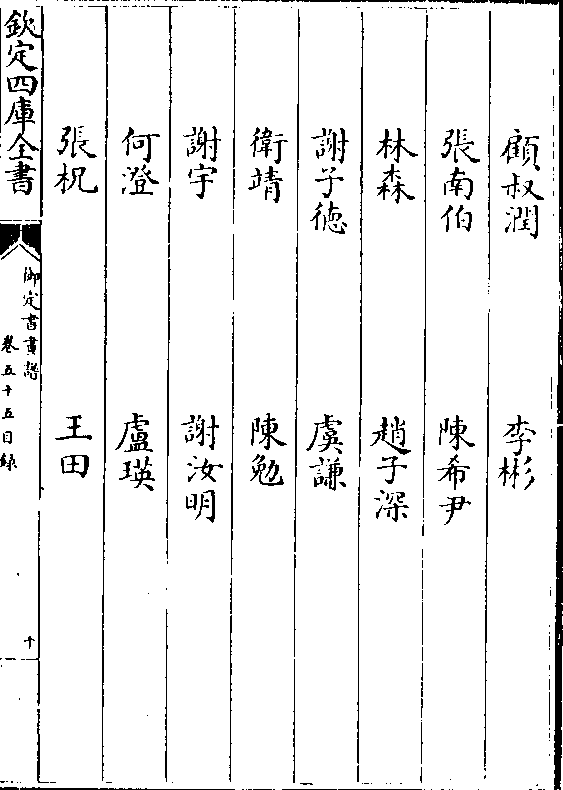 顧叔潤　李彬
張南伯　陳希尹
林森　趙子深
謝子徳　虞謙
衛靖　陳勉
謝宇　謝汝明
何澄　盧瑛
張柷　王田
欽定四庫全書
御定書畫譜
卷五十五目録
十